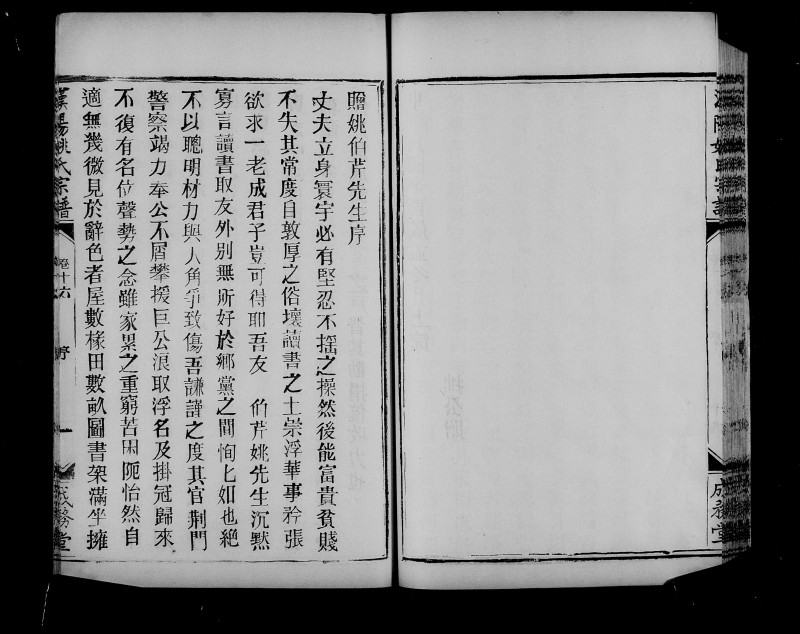 贈姚伯芹先生序
丈夫立身寰宇必有堅忍不搖之操然後能富貴貧賤
不失其常度自敦厚之俗壞讀書之士崇浮華事矜張
欲求一老成君子豈可得耶吾友 伯芹姚先生沉默
寡言讀書取友外別無所好於鄉黨之間恂匕如也絕
不以聰明材力與人角爭致傷吾謙謹之度其官荆門
警察竭力奉公不屑攀援巨公浪取浮名及掛冠歸來
不復有名位聲勢之念雖家累之重窮苦困阨怡然自
適無幾微見於辭色者屋數椽田數畝圖書架滿坐擁
漢陽姚氏宗譜
卷十六
序
一
成務堂
成務堂